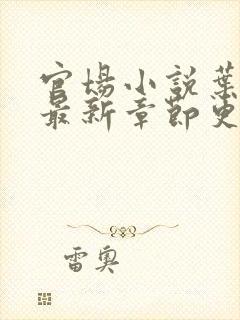 官场小説葉
最新章節更
雷奥